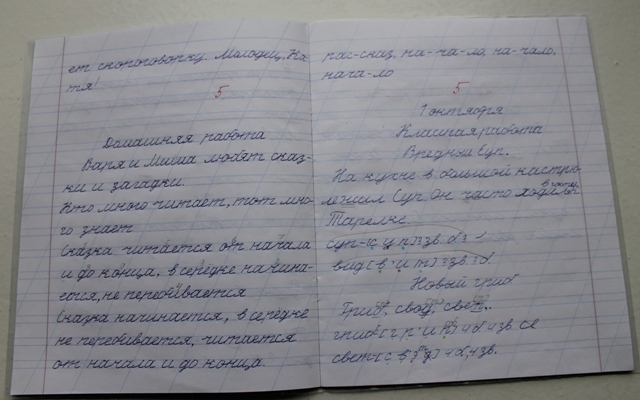 ет скороговорку. Молодец, Ка-
тя!
5
Домашняя работа
Варя и Миша любят сказ-
ки и загадки.
Кто много читает, тот мно-
го знает
Сказка читается от начала
и до конца, в середке начина-
ется, не перебивается
Сказка начинается, в середке
не перебивается, читается
от начала и до конца.
рас-сказ, на-ча-ло, на-чало,
нача-ло
5
1 октября
Классная работа
Вредный Суп.
На кухне в большой кастрю
Суп. Он часто ходил
в гости
Тарелке
суп-
вид
Новый гриб
Гриб, свод, свет.
гриб
свет